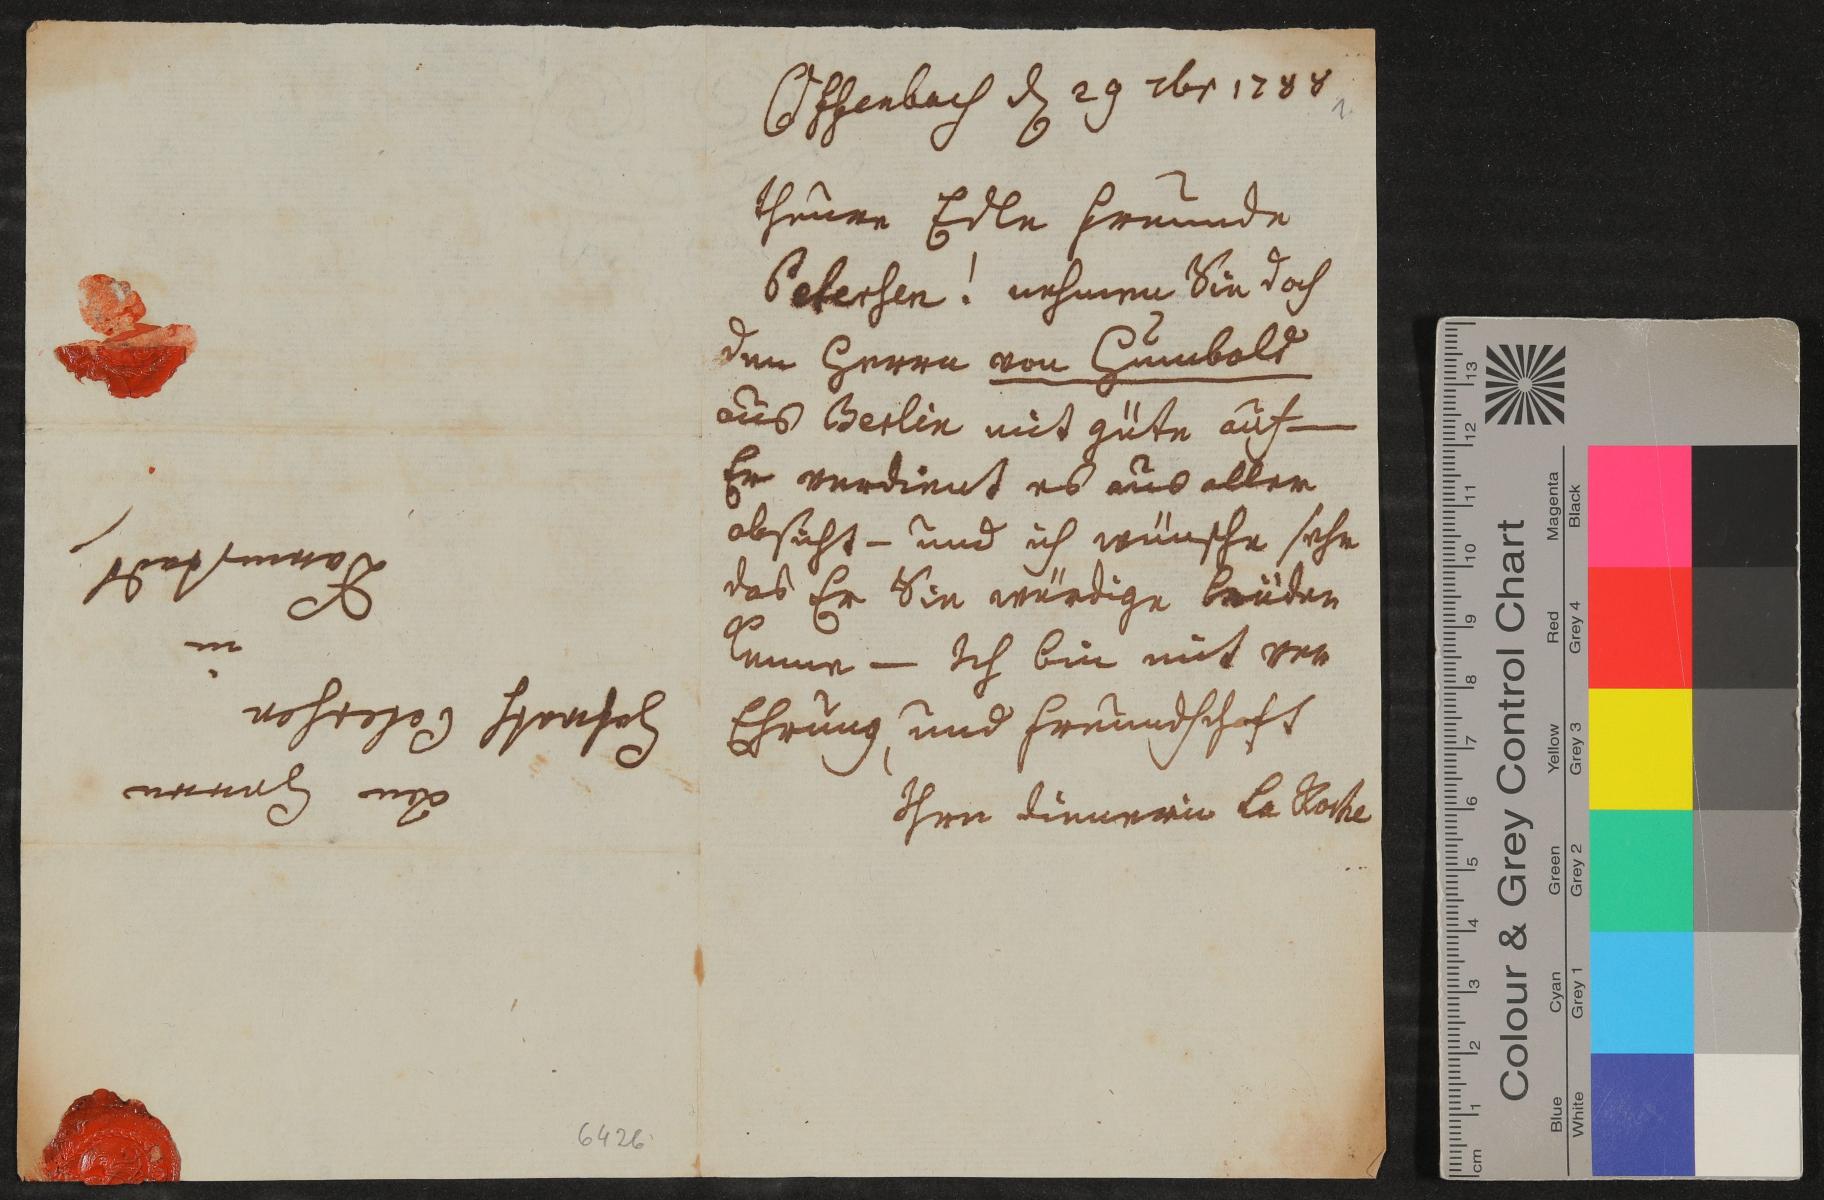 Offenbach d 29 7br 1788
1.
theure Edle Freunde
Petersen! nehmen Sie doch
den Herrn von Humbold
aus Berlin mit güte auf—
Er verdient es aus aller
absicht – und ich wünsche sehr
das Er Sie würdige brüder
kenne — Ich bin mit ver
Ehrung, und Freundschaft
Ihre dienerin La Roche
An Herrn
Hofrath Petersen
in
Darmstadt
6426
Colour & Grey Control Chart
Blue Cyan Green Yellow Red Magenta
White Grey 1 Grey 2 Grey 3 Grey 4 Black
cm 1 2 3 4 5 6 7 8 9 10 11 12 13